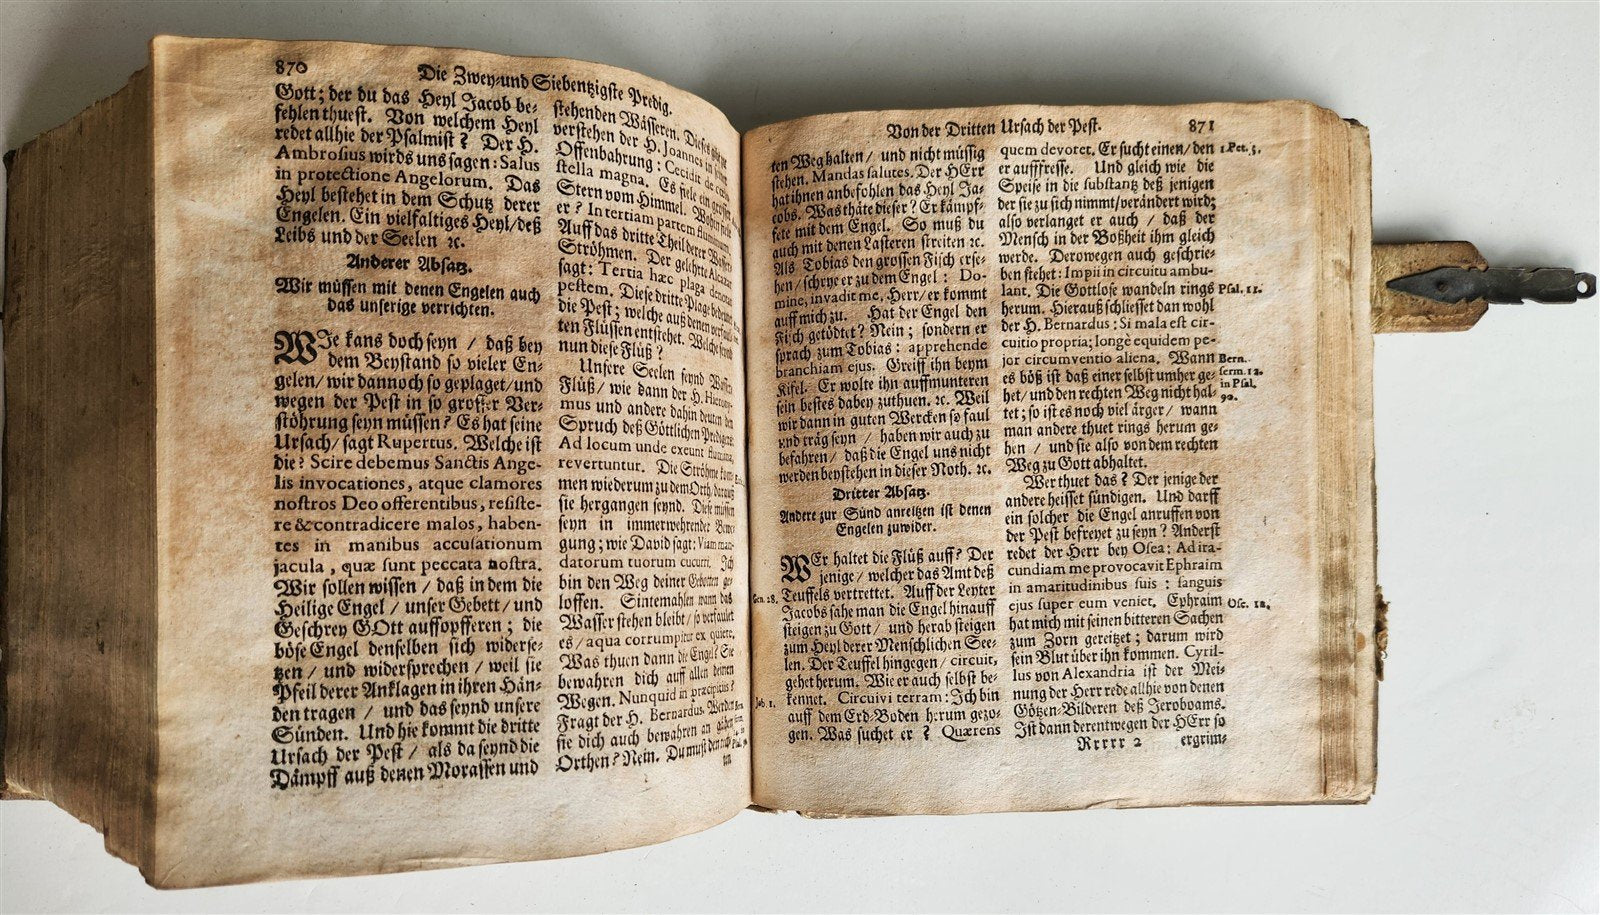 870
Die Zwey-und Siebentzigste Predig.
Gott; der du das Heyl Jacob be-
fehlen thuest. Von welchem Heyl
redet allhie der Psalmist? Der H.
Ambrosius wirds uns sagen: Salus
in protectione Angelorum. Das
Heyl bestehet in dem Schutz derer
Engelen. Ein vielfaltiges Heyl/deß
Leibs und der Seelen ꝛc.
Anderer Absatz.
Wir müssen mit denen Engelen auch
das unserige verrichten.
WIe kans doch seyn / daß bey
dem Beystand so vieler En-
gelen/ wir dannoch so geplaget/und
wegen der Pest in so grosser Ver-
stöhrung seyn müssen? Es hat seine
Ursach/ sagt Rupertus. Welche ist
die? Scire debemus Sanctis Ange-
lis invocationes, atque clamores
nostros Deo offerentibus, resiste-
re & contradicere malos, haben-
tes in manibus accusationum
jacula, quæ sunt peccata nostra.
Wir sollen wissen / daß in dem die
Heilige Engel / unser Gebett/ und
Geschrey GOtt auffopfferen; die
böse Engel denselben sich widerse-
tzen / und widersprechen / weil sie
Pfeil derer Anklagen in ihren Hän-
den tragen / und das seynd unsere
Sünden. Und hie kommt die dritte
Ursach der Pest / als da seynd die
Dämpff auß denen Morassen und
stehenden Wässeren. Dieses
verstehen der H. Joannes in
Offenbahrung: Cecidit de
stella magna. Es fiele ein grosser
Stern vom Himmel. Wohin fiele
er? In tertiam partem fluminum
Auff das dritte Theil derer
Ströhmen. Der gelehrte
sagt: Tertia hæc plaga denotat
pestem. Diese dritte Plage bedeutet
die Pest; welche auß denen
ten Flüssen entstehet. Welche seynd
nun diese Flüß?
Unsere Seelen seynd
Flüß/ wie dann der H. Hierony-
mus und andere dahin deuten den
Spruch deß Göttlichen Predigers:
Ad locum unde exeunt flumina,
revertuntur. Die Ströhme kom-
men wiederum zu dem Orth/ darauß
sie hergangen seynd. Diese müssen
seyn in immerwehrender Bewe-
gung; wie David sagt: Viam man-
datorum tuorum cucurri. Ich
bin den Weg deiner Gebotten ge-
loffen. Sintemahlen wann das
Wasser stehen bleibt/ so verfaulet
es/ aqua corrumpitur ex quiete.
Was thuen dann die Engel? Sie
bewahren dich auff allen deinen
Wegen. Nunquid in præcipitiis?
Fragt der H. Bernardus. Werden
sie dich auch bewahren an gähen
Orthen? Nein. Du must den
ten
Von der Dritten Ursach der Pest.
871
ten Weg halten / und nicht müssig
stehen. Mandas salutes. Der HErr
hat ihnen anbefohlen das Heyl Ja-
cobs. Was thäte dieser? Er kämpf-
fete mit dem Engel. So muß du
auch mit denen Lasteren streiten ꝛc.
Als Tobias den grossen Fisch erse-
hen/ schrye er zu dem Engel: Do-
mine, invadit me, Herr/ er kommt
auff mich zu. Hat der Engel den
Fisch getödtet? Nein; sondern er
sprach zum Tobias: apprehende
branchiam ejus. Greiff ihn beym
Kifel. Er wolte ihn auffmunteren
sein bestes dabey zuthuen. ꝛc. Weil
wir dann in guten Wercken so faul
und träg seyn / haben wir auch zu
befahren / daß die Engel uns nicht
werden beystehen in dieser Noth. ꝛc.
Dritter Absatz.
Andere zur Sünd anreitzen ist denen
Engelen zuwider.
WEr haltet die Flüß auff? Der
jenige/ welcher das Amt deß
Teuffels vertrettet. Auff der Leyter
Gen. 28.
Jacobs sahe man die Engel hinauff
steigen zu Gott / und herab steigen
zum Heyl derer Menschlichen See-
len. Der Teuffel hingegen / circuit,
gehet herum. Wie er auch selbst be-
kennet. Circuivi terram: Ich bin
Job 1.
auff dem Erd-Boden herum gezo-
gen. Was suchet er? Quærens
quem devoret. Er sucht einen/ den
1. Pet. 5.
er auffresse. Und gleich wie die
Speise in die substantz deß jenigen
der sie zu sich nimmt/verändert wird;
also verlanget er auch / daß der
Mensch in der Boßheit ihm gleich
werde. Derowegen auch geschrie-
ben stehet: Impii in circuitu ambu-
lant. Die Gottlose wandeln rings
Psal. 11.
herum. Hierauß schliesset dan wohl
der H. Bernardus: Si mala est cir-
cuitio propria; longè equidem pe-
jor circumventio aliena. Wann
Bern.
es böß ist daß einer selbst umher ge-
serm. 12.
het/ und den rechten Weg nicht hal-
in Psal.
90.
tet; so ist es noch viel ärger/ wann
man andere thuet rings herum ge-
hen / und sie also von dem rechten
Weg zu Gott abhaltet.
Wer thuet das? Der jenige der
andere heisset sündigen. Und darff
ein solcher die Engel anruffen von
der Pest befreyet zu seyn? Anderst
redet der Herr bey Osea: Ad ira-
cundiam me provocavit Ephraim
in amaritudinibus suis: sanguis
ejus super eum veniet. Ephraim
Ose. 12.
hat mich mit seinen bitteren Sachen
zum Zorn gereitzet; darum wird
sein Blut über ihn kommen. Cyril-
lus von Alexandria ist der Mei-
nung der Herr rede allhie von denen
Götzen-Bilderen deß Jeroboams.
Ist dann derentwegen der HErr so
Rrrrr 2
ergrim-